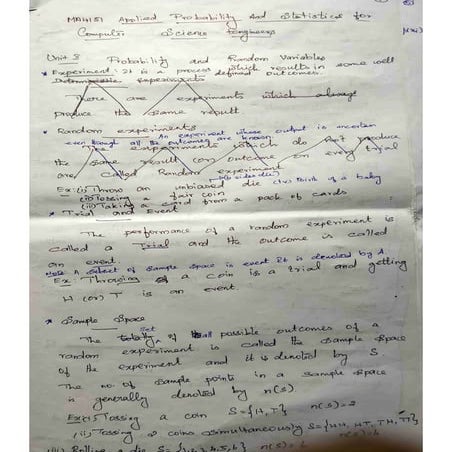 MA4151 Applied Probability and Statistics for
Computer Science Engineers
Unit Probability and Random Variables
* Experiment: It is a process which results in some well
defined outcomes.
Deterministic experiments
There are experiments which always
produce the same result
* Random experiments An experiment whose output is uncertain
even though all the outcomes are known
experiments which do not produce
the same result (or) outcome on every trial
are called Random experiment
Ex: (i) Throw an unbiased die Birth of a baby
(ii) Tossing a fair coin
(iii) Taking a card from a pack of cards
* Trial and Event
The performance of a random experiment is
called a Trial and the outcome is called
an event.
A subset of sample space is event It is denoted by A
Ex: Throwing of a coin is a trial and getting
H (or) T is an event
* Sample Space
The totally set of all possible outcomes of a
random experiment is called the sample space
of the experiment and it is denoted by S
The no of sample points in a sample space
is generally denoted by n(S)
Ex: (i) Tossing a coin S={H,T} n(S)=2
(ii) Tossing 2 coins simultaneously S={HH, HT, TH, TT}
(iii) Rolling a die S={1,2,3,4,5,6} n(S)=6